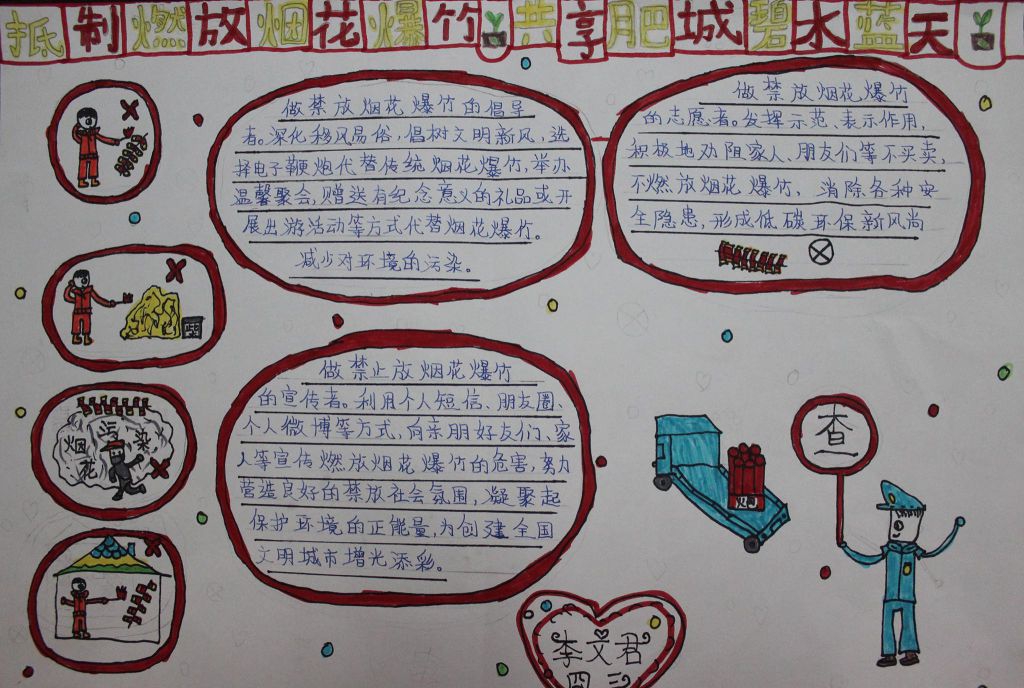 抵制燃放烟花爆竹共享肥城碧水蓝天
做禁放烟花爆竹的倡导
者。深化移风易俗,倡树文明新风,选
择电子鞭炮代替传统烟花爆竹,举办
温馨聚会,赠送有纪念意义的礼品或开
展出游活动等方式代替烟花爆竹。
减少对环境的污染。
做禁放烟花爆竹
的志愿者。发挥示范、表示作用,
积极地劝阻家人、朋友们等不买卖,
不燃放烟花爆竹,消除各种安
全隐患,形成低碳环保新风尚
做禁止放烟花爆竹
的宣传者。利用个人短信、朋友圈、
个人微博等方式,向亲朋好友们、家
人等宣传燃放烟花爆竹的危害,努力
营造良好的禁放社会氛围,凝聚起
保护环境的正能量,为创建全国
文明城市增光添彩。
烟花污染
查
李文君
四三